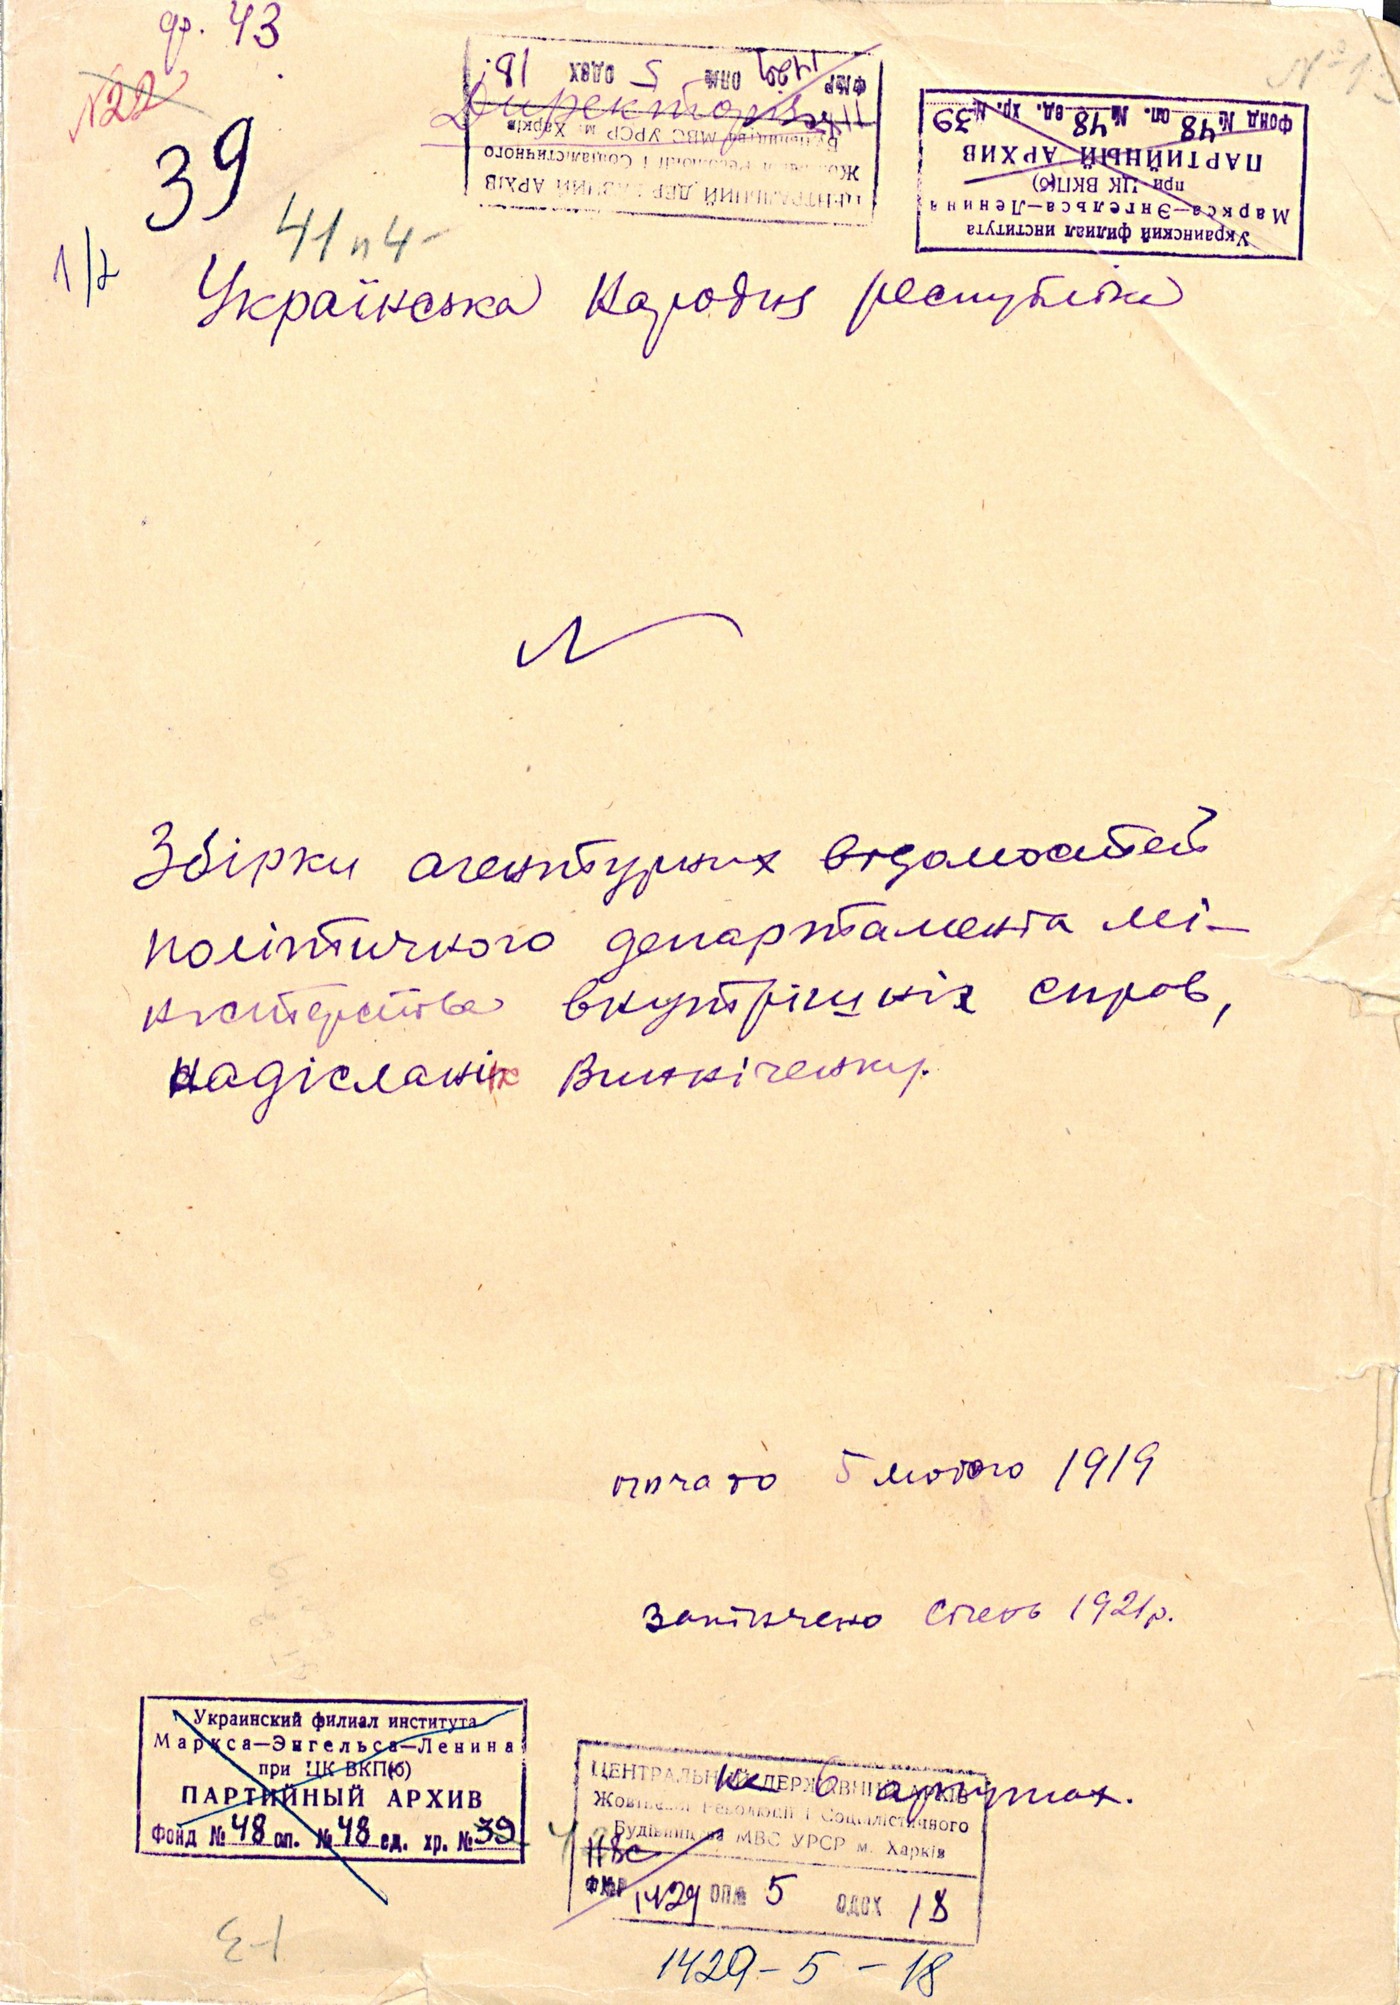 ф. 43
N22
39
41 п 4-
1/2
Директорія
1429 5 18
ЦЕНТРАЛЬНИЙ ДЕРЖАВНИЙ АРХІВ
Жовтневої Революції і Соціалістичного
Будівництва МВС УРСР м. Харків
ФМР ОПМ ОДОХ
Украинский филиал института
Маркса—Энгельса—Ленина
при ЦК ВКП(б)
ПАРТИЙНЫЙ АРХИВ
Фонд № 48 оп. № 48 ед. хр. № 39
Українська Народня республіка
Збірки агентурних відомостей
політичного департамента мі-
ністерства внутрішніх справ,
надісланих Винніченку.
почато 5 лютого 1919
Закінчено Січень 1921р.
Украинский филиал института
Маркса—Энгельса—Ленина
при ЦК ВКП(б)
ПАРТИЙНЫЙ АРХИВ
Фонд № 48 оп. № 48 ед. хр. № 39
на 6 аркушах.
ЦЕНТРАЛЬНИЙ ДЕРЖАВНИЙ АРХІВ
Жовтневої Революції і Соціалістичного
Будівництва МВС УРСР м. Харків
ФМР 1429 ОПМ 5 ОДОХ 18
1429-5-18